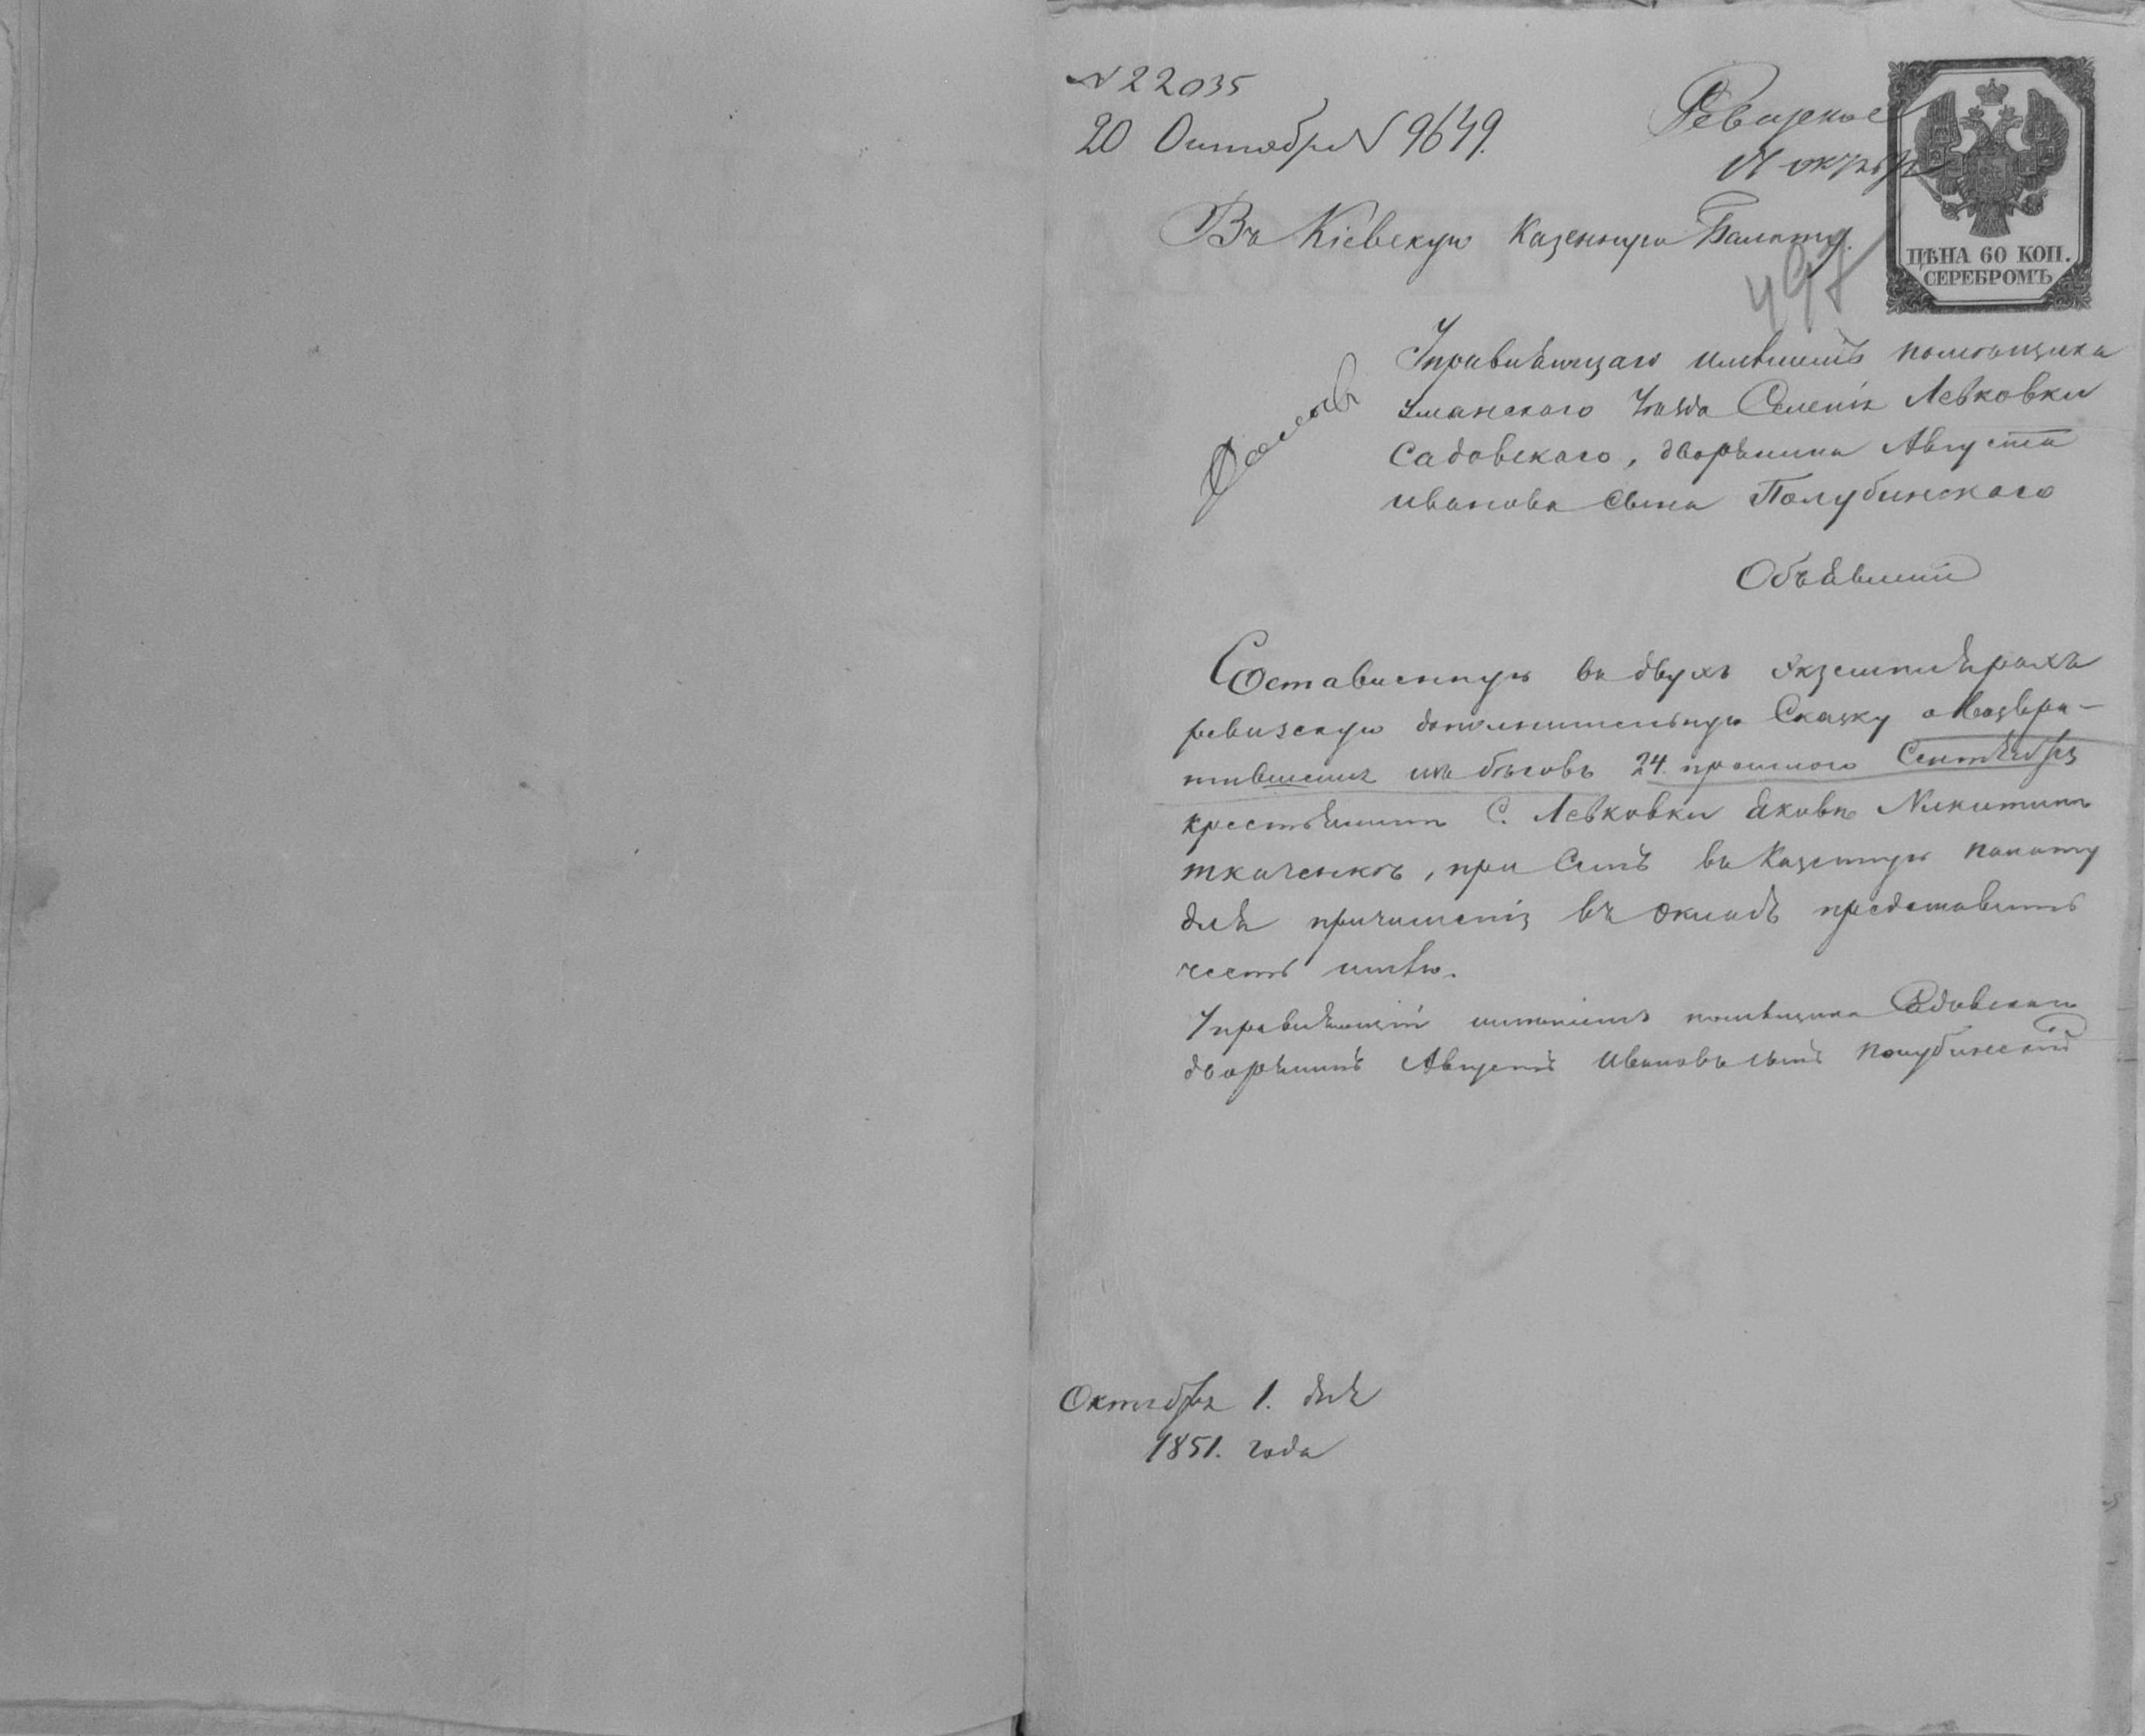 № 22035
20 Октября № 9649.
Ревизское
Октябр
ЦѢНА 60 КОП.
СЕРЕБРОМЪ
Въ Кіевскую Казенную Палату.
497
Управляющаго имѣніемъ помѣщика
Уманскаго Уѣзда Селенія Левковки
Садовскаго, дворянина Августа
Иванова Сына Полубинскаго
Объявленіе
Составленную въ двухъ экземплярахъ
ревизскую дополнительную Сказку о возвра-
тившемся изъ бѣговъ 24. прошлого Сентября
крестьянинѣ С. Левковки Яковѣ Никитинѣ
ткаченкѣ, при Семъ въ Казенную палату
для причисленія въ окладъ представить
честь имѣю.
Управляющій имѣніемъ помѣщика Садовскаго
дворянинъ Августъ Ивановъ сынъ Полубинскій
Октября 1. дня
1851. года